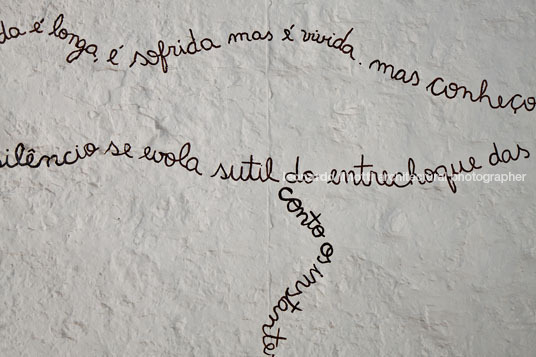 da é longa, é sofrida mas é vivida. mas conheço
silêncio se evola sutil do entrechoque das
conto os instante